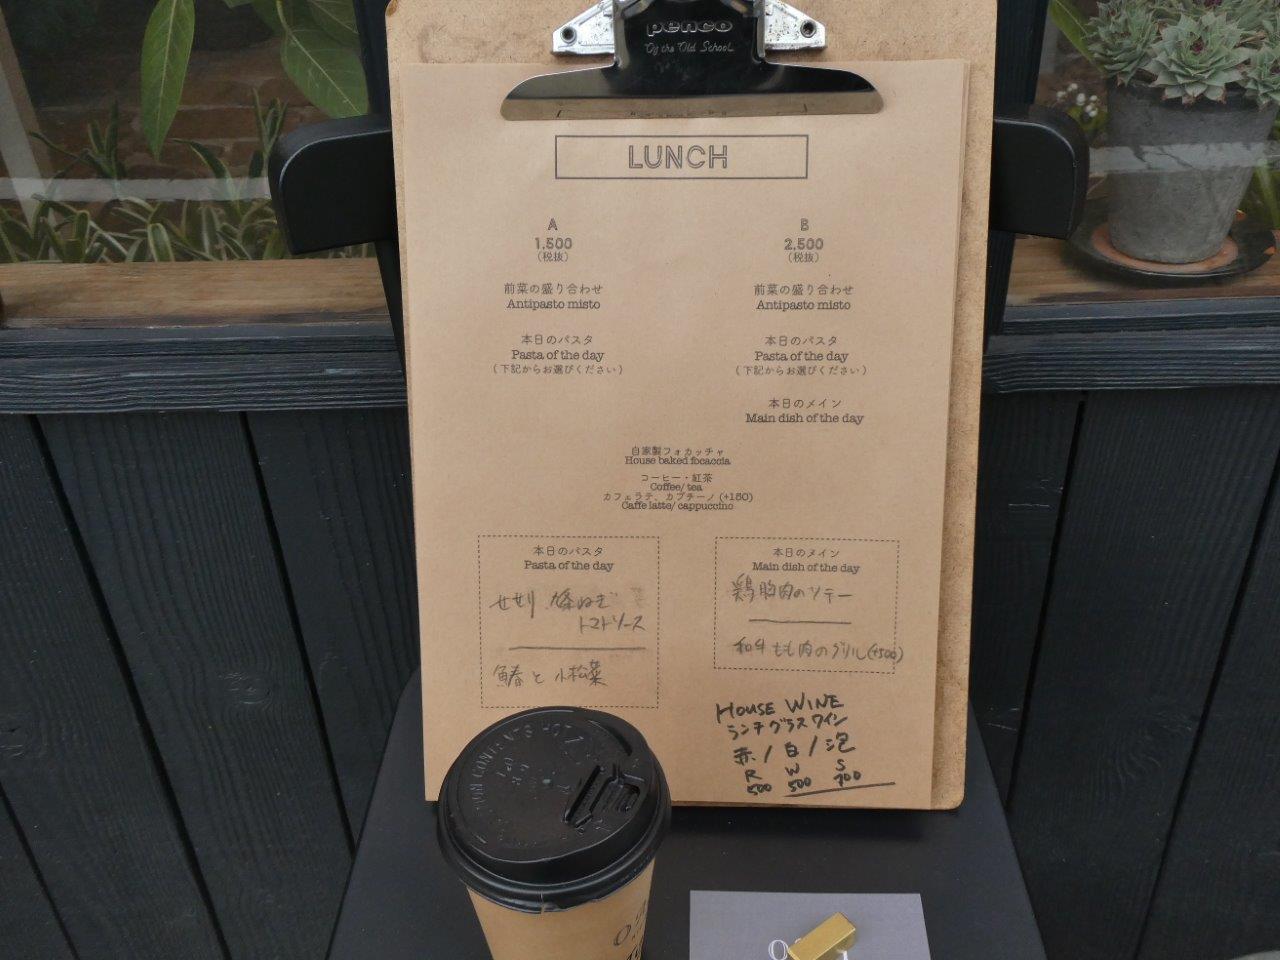 penco
Of the Old School
LUNCH
A
1,500
(税抜)
前菜の盛り合わせ
Antipasto misto
本日のパスタ
Pasta of the day
(下記からお選びください)
B
2,500
(税抜)
前菜の盛り合わせ
Antipasto misto
本日のパスタ
Pasta of the day
(下記からお選びください)
本日のメイン
Main dish of the day
自家製フォカッチャ
House baked focaccia
コーヒー・紅茶
Coffee/ tea
カフェラテ、カプチーノ (+150)
Caffe latte/ cappuccino
本日のパスタ
Pasta of the day
せせり 九条ねぎ
トマトソース
鰆と小松菜
本日のメイン
Main dish of the day
鶏胸肉のソテー
和牛もも肉のグリル(+500)
HOUSE WINE
ランチグラスワイン
赤/白/泡
R W S
500 500 700